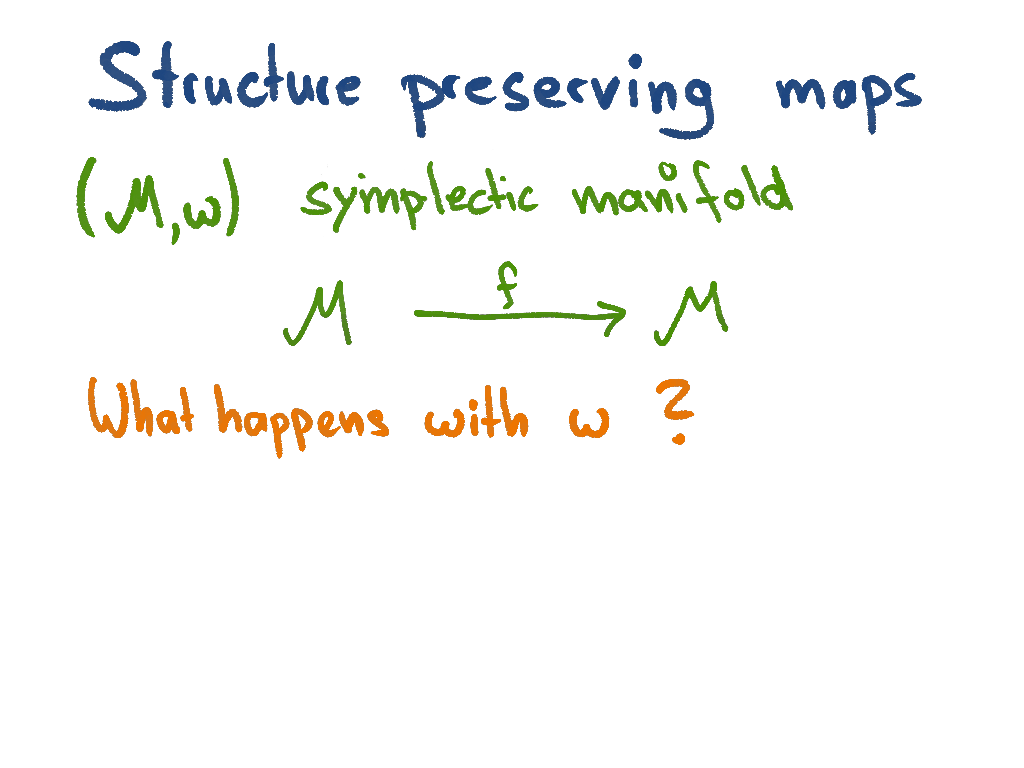 Structure preserving maps
(M, ω) symplectic manifold
M f→ M
What happens with ω ?